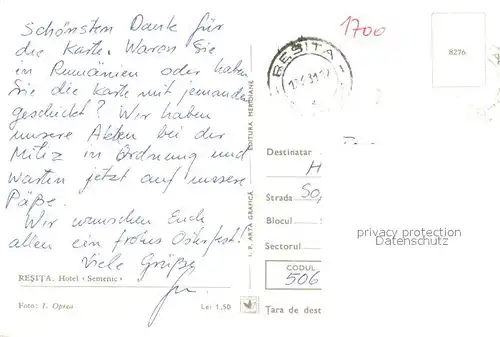 Schönsten Dank für
die Karte. Waren Sie
in Rumänien oder haben
Sie die Karte mit jemanden
geschickt? Wir haben
unsere Akten bei der
Miliz in Ordnung und
warten jetzt auf unsere
Päße.
Wir wünschen Euch
allen ein frohes Osterfest!
Viele Grüße
REȘIȚA. Hotel «Semenic»
Foto: I. Oprea
Lei 1,50
I. P. ARTA GRAFICĂ
EDITURA MERIDIANE
1700
REȘIȚA 1
8276
Destinatar
H
Strada So,
Blocul
Sectorul
CODUL
506
Țara de dest
privacy protection
Datenschutz